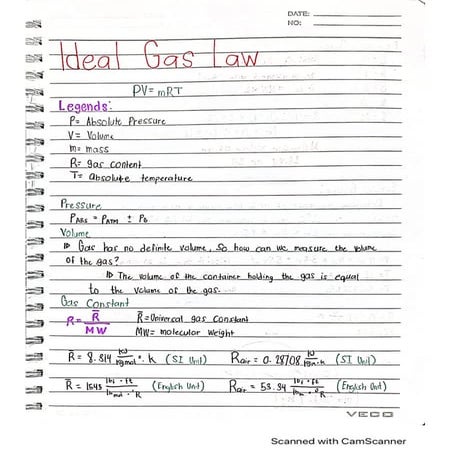 DATE:
NO:
Ideal Gas Law
PV= mRT
Legends:
P= Absolute Pressure
V= Volume
m= mass
R= gas content
T= absolute temperature
Pressure
PABS = PATM ± PG
Volume
Gas has no definite volume, So how can we measure the volume
of the gas?
The volume of the container holding the gas is equal
to the volume of the gas.
Gas Constant
R= R̅/MW
R̅= Universal gas constant
MW= molecular weight
R̅ = 8.314 (SI Unit) Rair = 0.28708 (SI Unit)
R̅ = 1545 (English Unit) Rair = 53.34 (English Unit)
VECO
Scanned with CamScanner